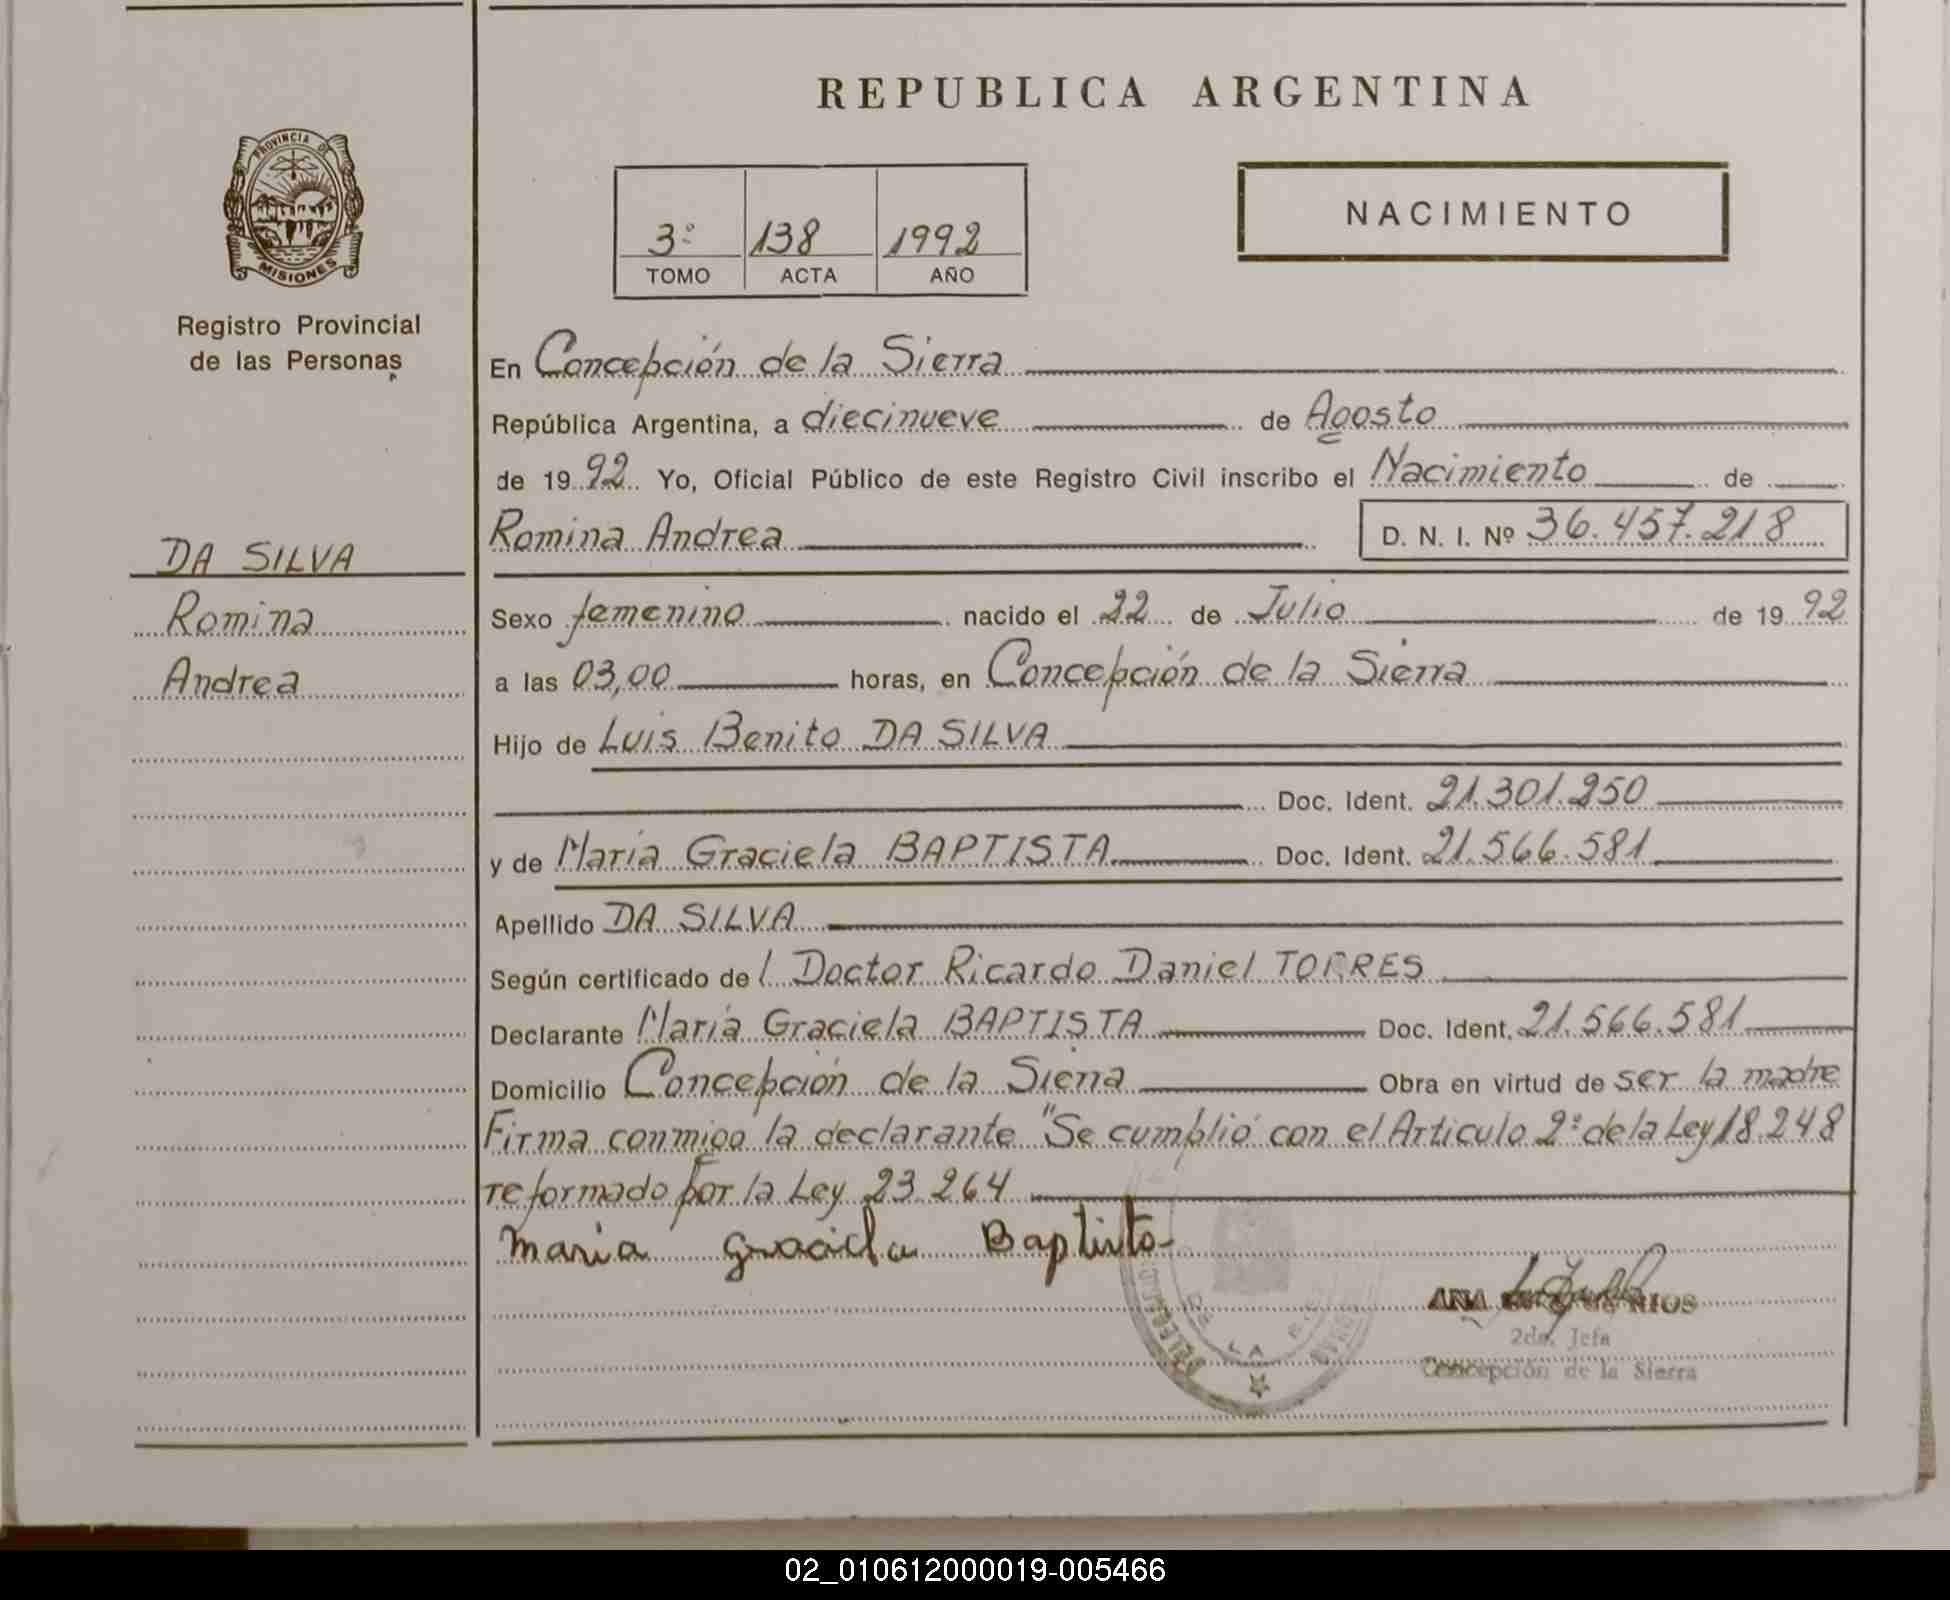 REPUBLICA ARGENTINA
PROVINCIA DE
MISIONES
Registro Provincial
de las Personas
3º 138 1992
TOMO ACTA AÑO
NACIMIENTO
En Concepción de la Sierra
República Argentina, a diecinueve de Agosto
de 1992 Yo, Oficial Público de este Registro Civil inscribo el Nacimiento de
Romina Andrea D. N. I. Nº 36.457.218
DA SILVA
Romina
Andrea
Sexo femenino nacido el 22 de Julio de 1992
a las 03,00 horas, en Concepción de la Sierra
Hijo de Luis Benito DA SILVA
Doc. Ident. 21.301.250
y de María Graciela BAPTISTA Doc. Ident. 21.566.581
Apellido DA SILVA
Según certificado de l Doctor Ricardo Daniel TORRES
Declarante María Graciela BAPTISTA Doc. Ident. 21.566.581
Domicilio Concepción de la Sierra Obra en virtud de ser la madre
Firma conmigo la declarante "Se cumplió con el Articulo 2º de la Ley 18.248
reformado por la Ley 23.264
maria graciela Baptista
ANA RIOS
2da. Jefa
Concepción de la Sierra
DE LA
02_010612000019-005466